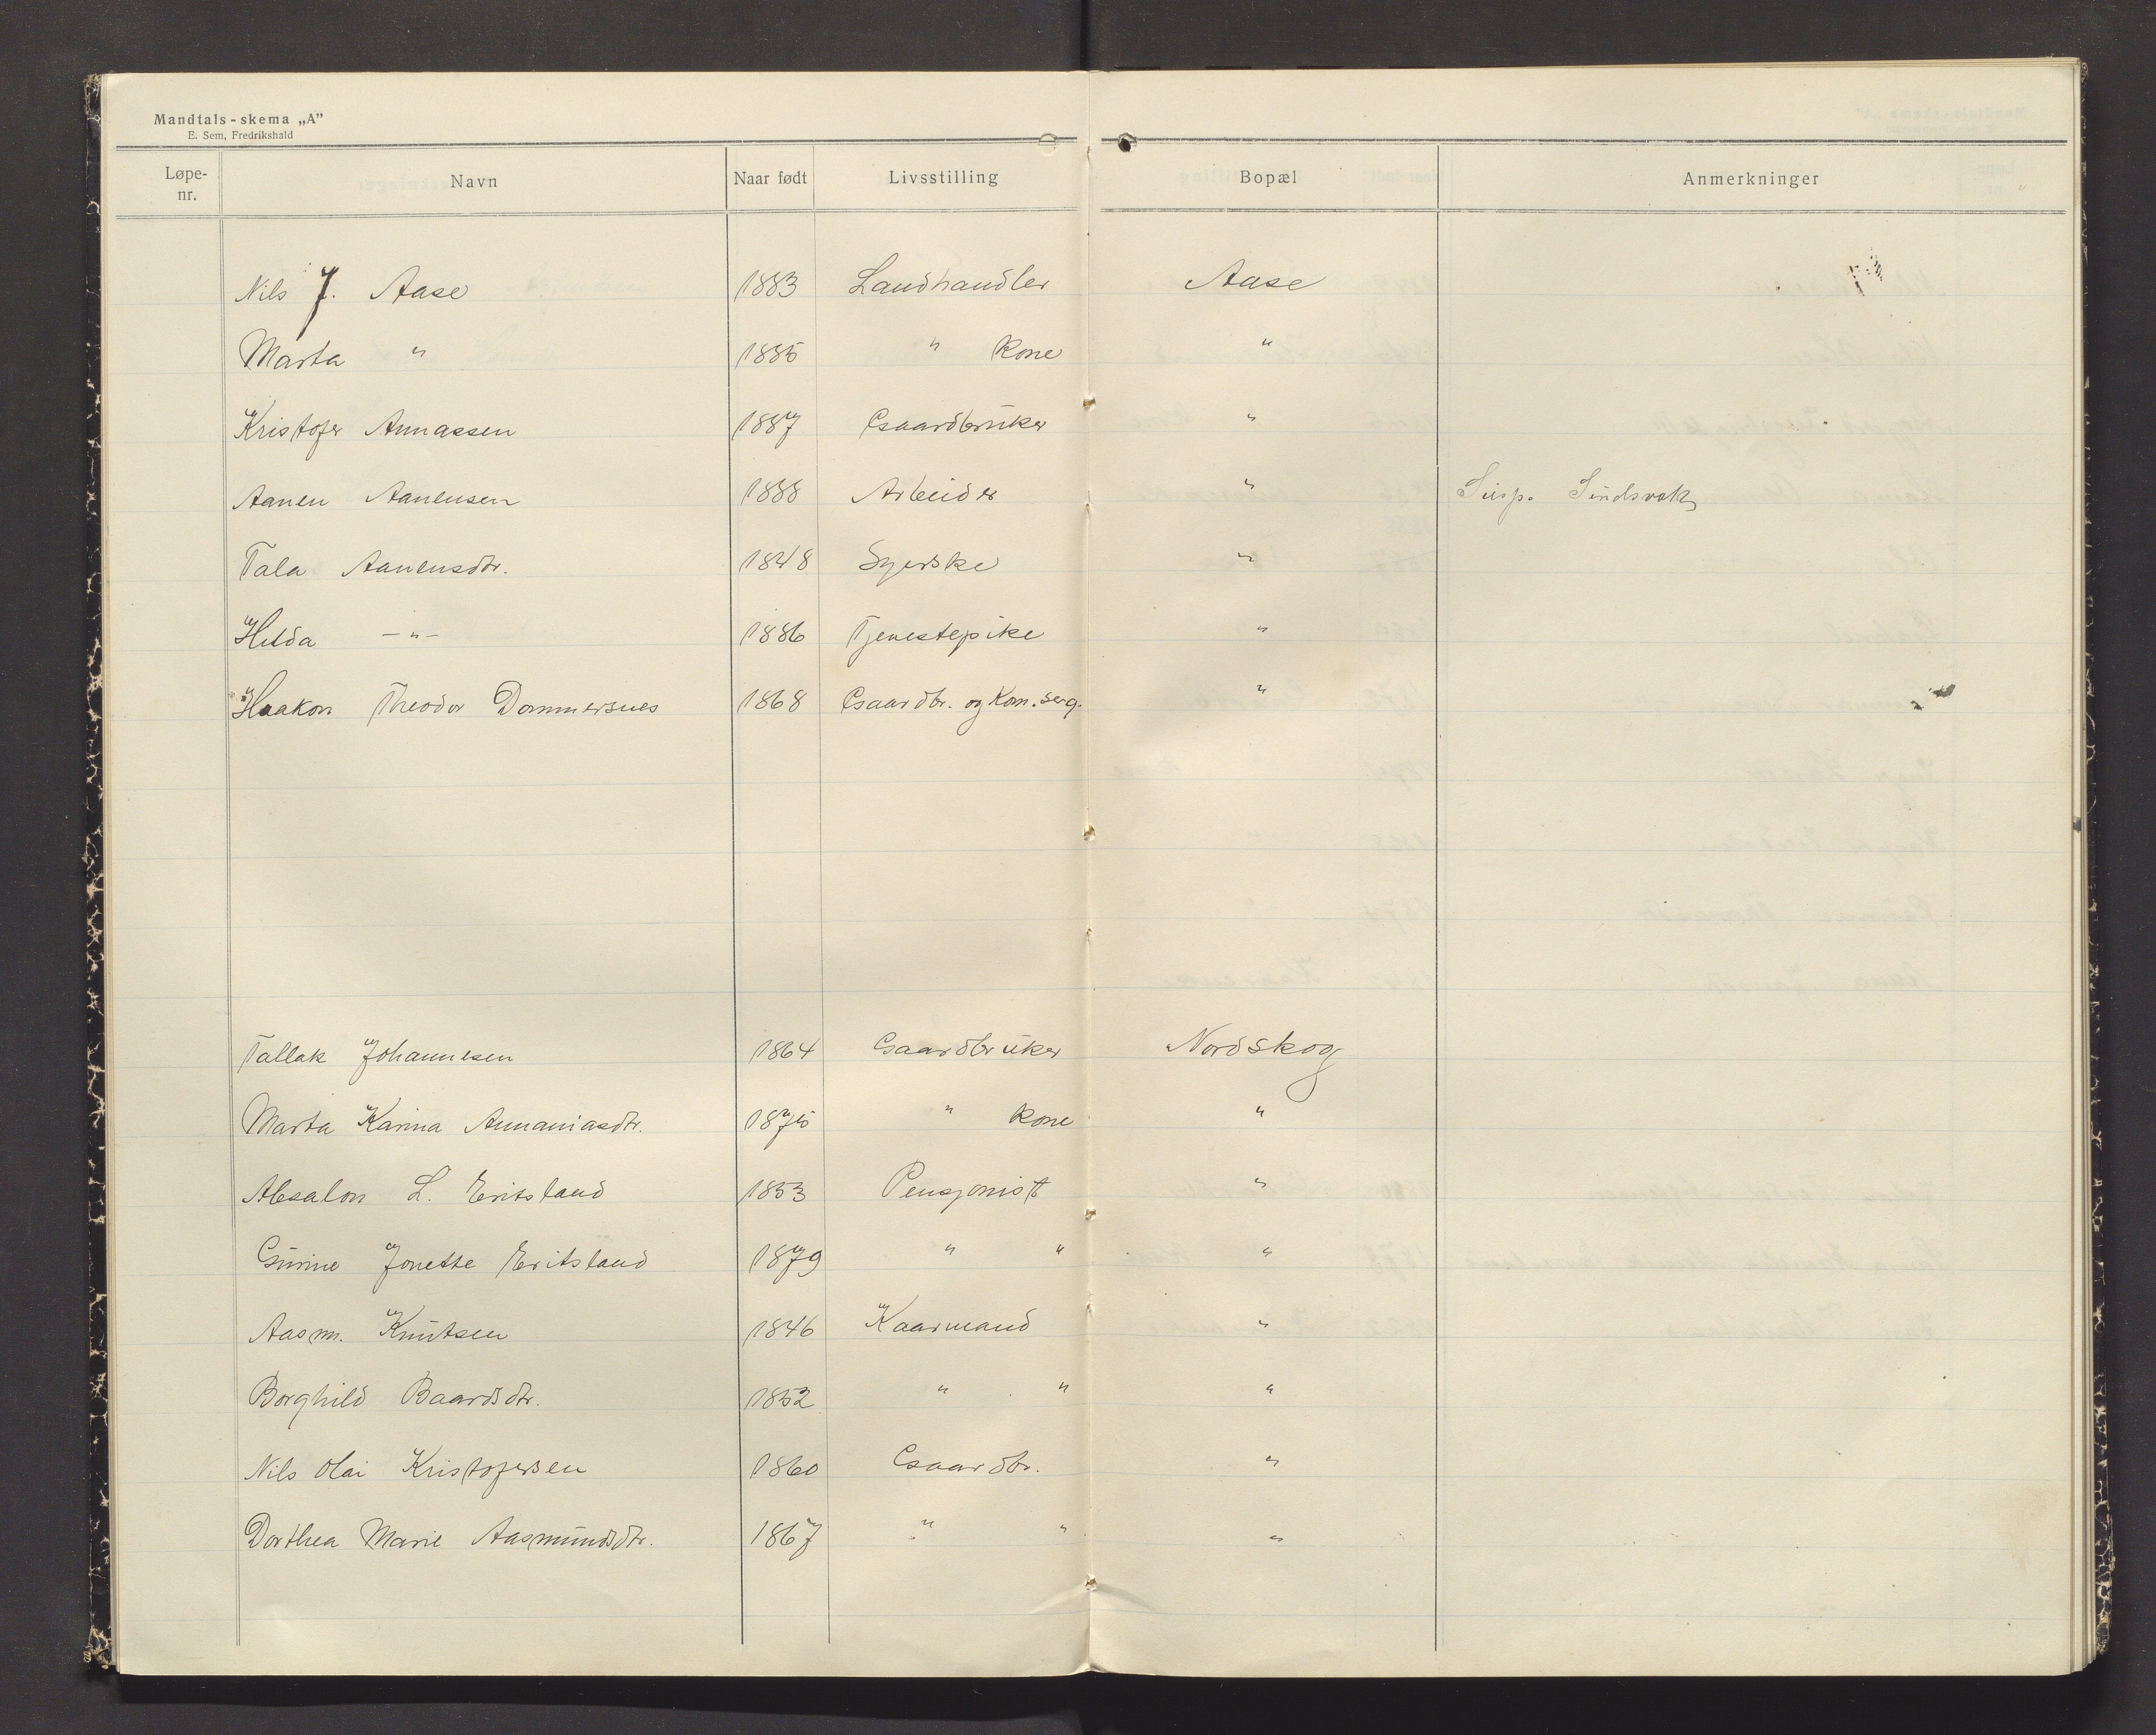 Mandtals-skema „A"
E. Sem, Fredrikshald
Løpe-nr. Navn Naar født Livsstilling Bopæl Anmerkninger
Nils J. Aase 1883 Landhandler Aase
Marta " 1885 " Kone "
Kristofer Annassen 1887 Gaardbruker "
Aanen Aanensen 1888 Arbeider " Susp. Sindsvak
Tala Aanensdtr. 1848 Syerske "
Hilda —"— 1886 Tjenestepike "
Haakon Theodor Dommersnes 1868 Gaardbr. og Kom.serg. "
Tallak Johannesen 1864 Gaardbruker Nordskog
Marta Karina Annaniasdtr. 1875 " Kone "
Absalon L. Eritsland 1853 Pensjonist "
Gurine Jonette Eritsland 1879 " " "
Aasm. Knutsen 1846 Kaarmand "
Borghild Baardsdtr. 1852 " " "
Nils Olai Kristofersen 1860 Gaardbr. "
Dorthea Marie Aasmundsdtr. 1867 " " "